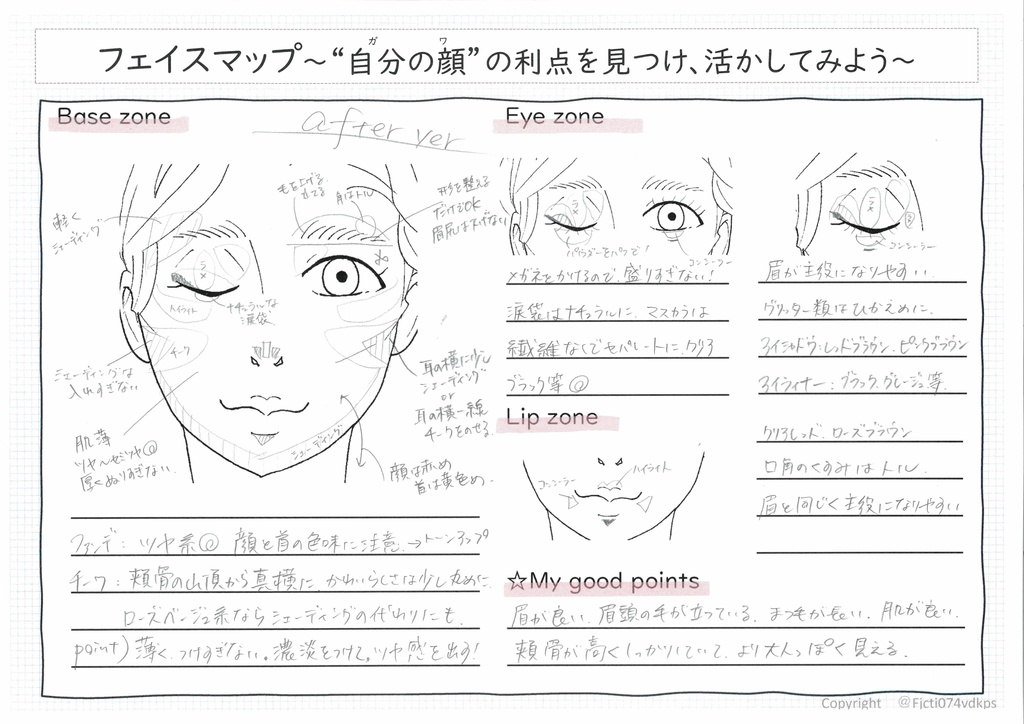 フェイスマップ～“自分の顔”の利点を見つけ、活かしてみよう～
ガ ワ
Base zone
after ver
軽く
シェーディング
毛を上げる
立てる
角はトル
形を整える
だけでOK
眉尻は下げない
ラメ
ハイライト
ナチュラルな
涙袋
チーク
シェーディングは
入れすぎない
耳の横に少し
シェーディング
or
耳の横一線
チークをのせる
肌薄
ツヤ～セミツヤ◎
厚くぬりすぎない。
シェーディング
顔は赤め
首は黄色め。
ファンデ：ツヤ系◎ 顔と首の色味に注意→トーンアップ
チーク：頬骨の山頂から真横に。かわいらしさは少し丸めに
ローズベージュ系ならシェーディングの代わりにも
point）薄く、つけすぎない。濃淡をつけて。ツヤ感を出す！
Eye zone
ラメ
パウダーをパケで！
コンシーラー
メガネをかけるので、盛りすぎない！
涙袋はナチュラルに、マスカラは
繊維なしでセパレートに。クリア
ブラック等◎
ラメ
コンシーラー
眉が主役になりやすい。
グリッター類はひかえめに。
アイシャドウ：レッドブラウン、ピンクブラウン
アイライナー：ブラック、グレージュ等。
Lip zone
コンシーラー
ハイライト
クリアレッド、ローズブラウン
口角のくすみはトル。
眉と同じく主役になりやすい
☆My good points
眉が良い。眉頭の毛が立っている。まつ毛が長い。肌が良い。
頬骨が高くしっかりしていて、より大人っぽく見える。
Copyright @Fjcti074vdkps